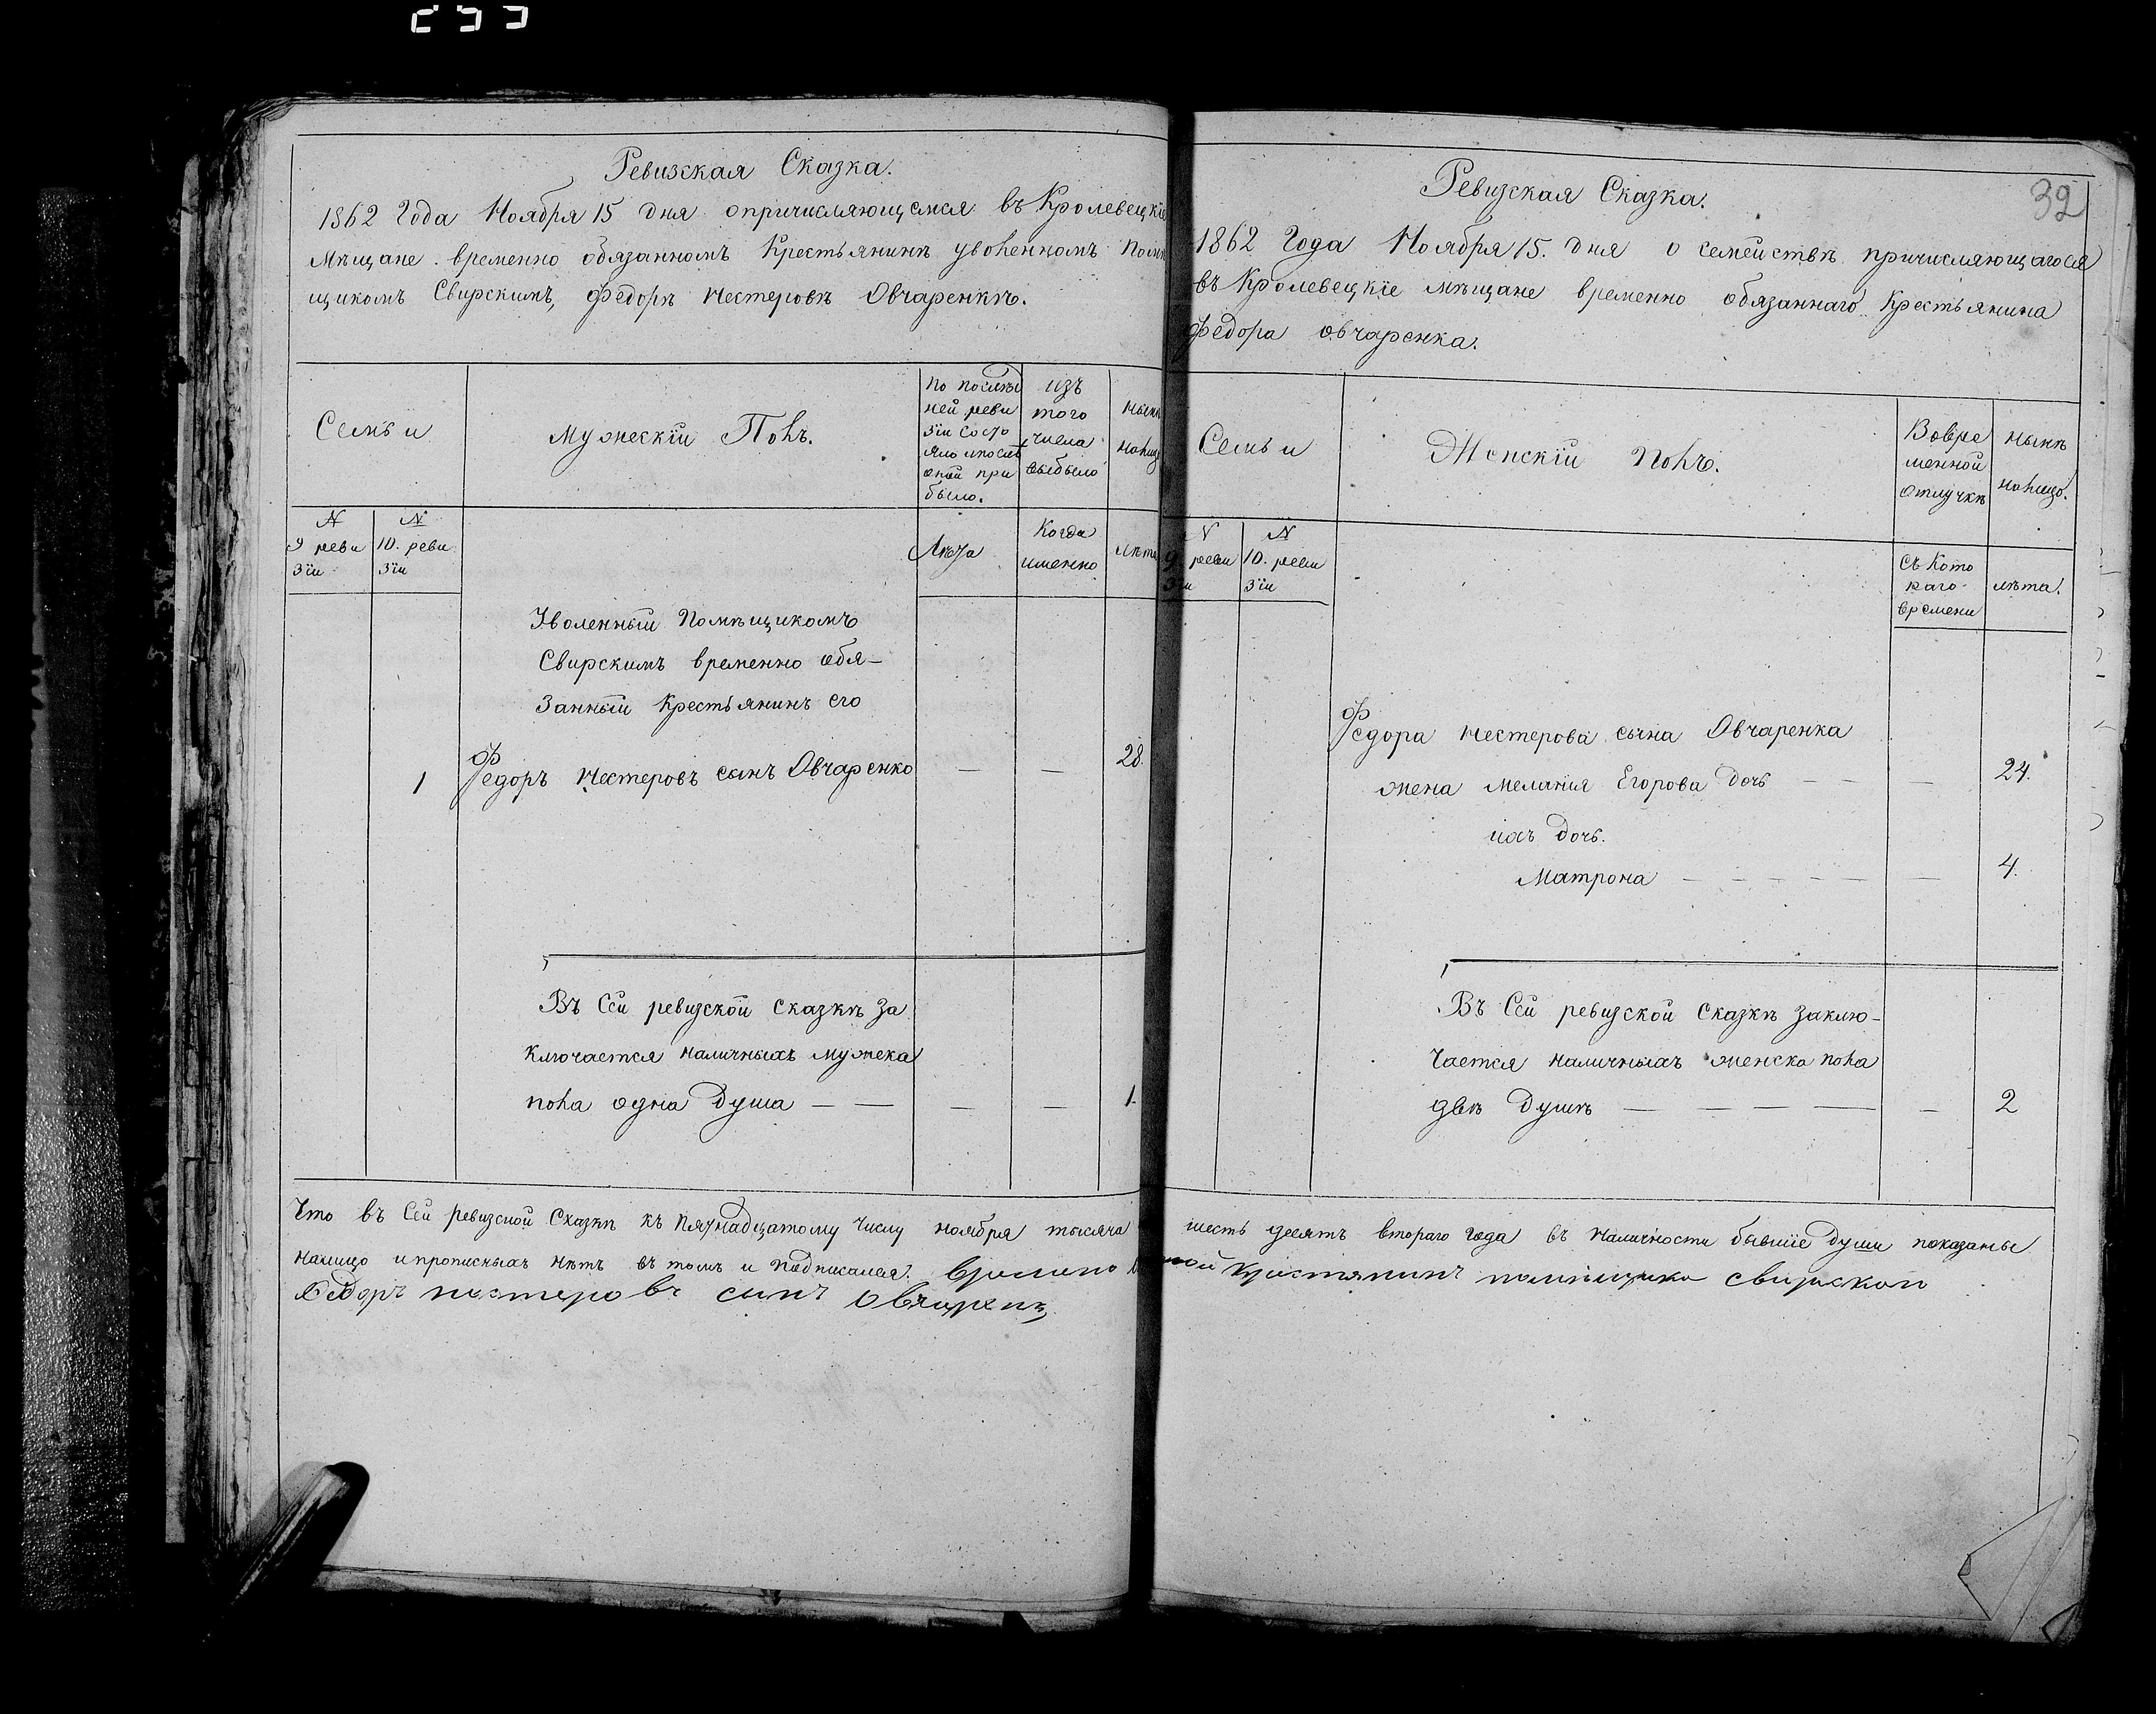 Ревизская Сказка.
1862 Года Ноября 15 дня опричисляющемся въ Кролевецкіе
Мѣщане временно обязанномъ Крестьянинѣ уволенномъ Помѣ
щикомъ Свирскимъ, Федорѣ Нестеровѣ Овчаренкѣ.
Семьи
Мужескій Полъ.
По послѣд
ней реви
зіи состо
яло и послѣ
оной при
было.
изъ
того
числа
выбыло
Нынѣ
налицо
N
9 реви
зіи
N
10. реви
зіи
Лѣта
Когда
именно
Лѣта
Уволенный Помѣщикомъ
Свирскимъ временно обя-
занный Крестьянинъ его
1 Федоръ Нестеровъ сынъ Овчаренко — — 28.
Въ Сей ревизской Сказкѣ за
ключается наличныхъ мужска
пола одна Душа — — — — 1.
32
Ревизская Сказка.
1862 Года Ноября 15. дня о семействѣ причисляющагося
въ Кролевецкіе мѣщане временно обязаннаго Крестьянина
Федора Овчаренка.
Семьи
Женскій Полъ.
Во вре
менной
отлучкѣ
нынѣ
налицо.
N
9 реви
зіи
N
10. реви
зіи
Съ Кото
раго
времени
лѣта.
Федора Нестерова сына Овчаренка
жена Меланія Егорова дочь — — — 24.
ихъ дочь.
Матрона — — — — — — 4.
Въ Сей ревизской Сказкѣ заклю-
чается наличныхъ женска пола
двѣ Душѣ — — — — — 2
Что въ Сей ревизской Сказкѣ къ пятнадцатому числу ноября тысяча шесть десятъ втораго года въ наличности бывшіе Души показаны
налицо и прописныхъ нѣтъ въ томъ и подписался. Времено ной Кристянинъ помѣщика свирскои
Федоръ нестеровъ синъ